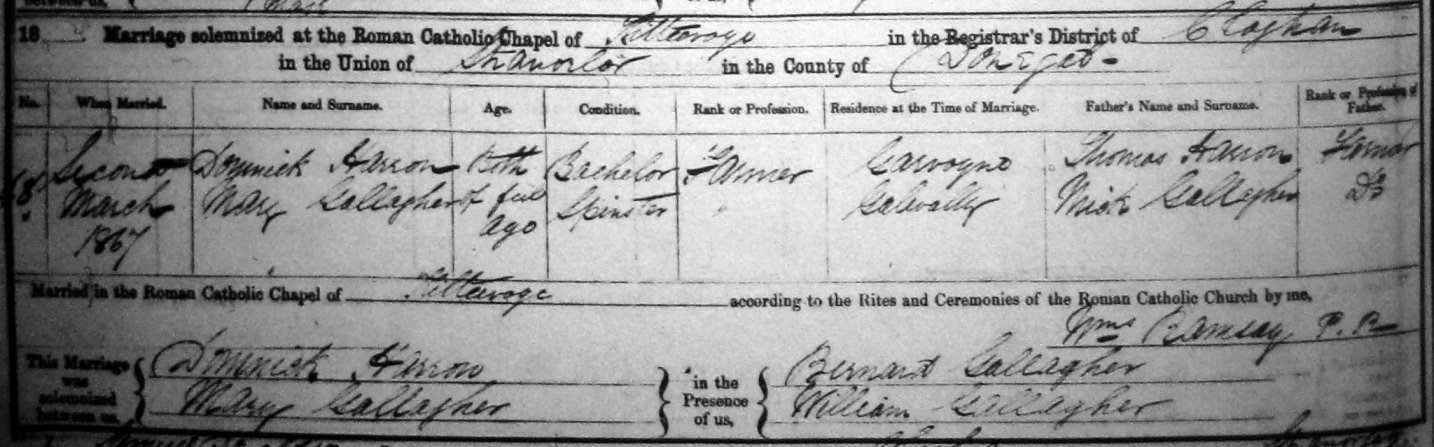 18 . Marriage solemnized at the Roman Catholic Chapel of Killeroge in the Registrar's District of Cloghan
in the Union of Stranorlar in the County of Donegal
No. When Married. Name and Surname. Age. Condition. Rank or Profession. Residence at the Time of Marriage. Father's Name and Surname. Rank or Profession of Father.
Second Dominick Harron Both Bachelor Farmer Garvogne Thomas Harron Farmer
March Mary Gallagher of full Spinster Galwolly Mick Gallagher Do
1867 age
Married in the Roman Catholic Chapel of Killeroge according to the Rites and Ceremonies of the Roman Catholic Church by me,
Wms Ramsay P.P.
This Marriage was solemnized between us, Dominick Harron in the Presence of us, Bernard Gallagher
Mary Gallagher William Gallagher